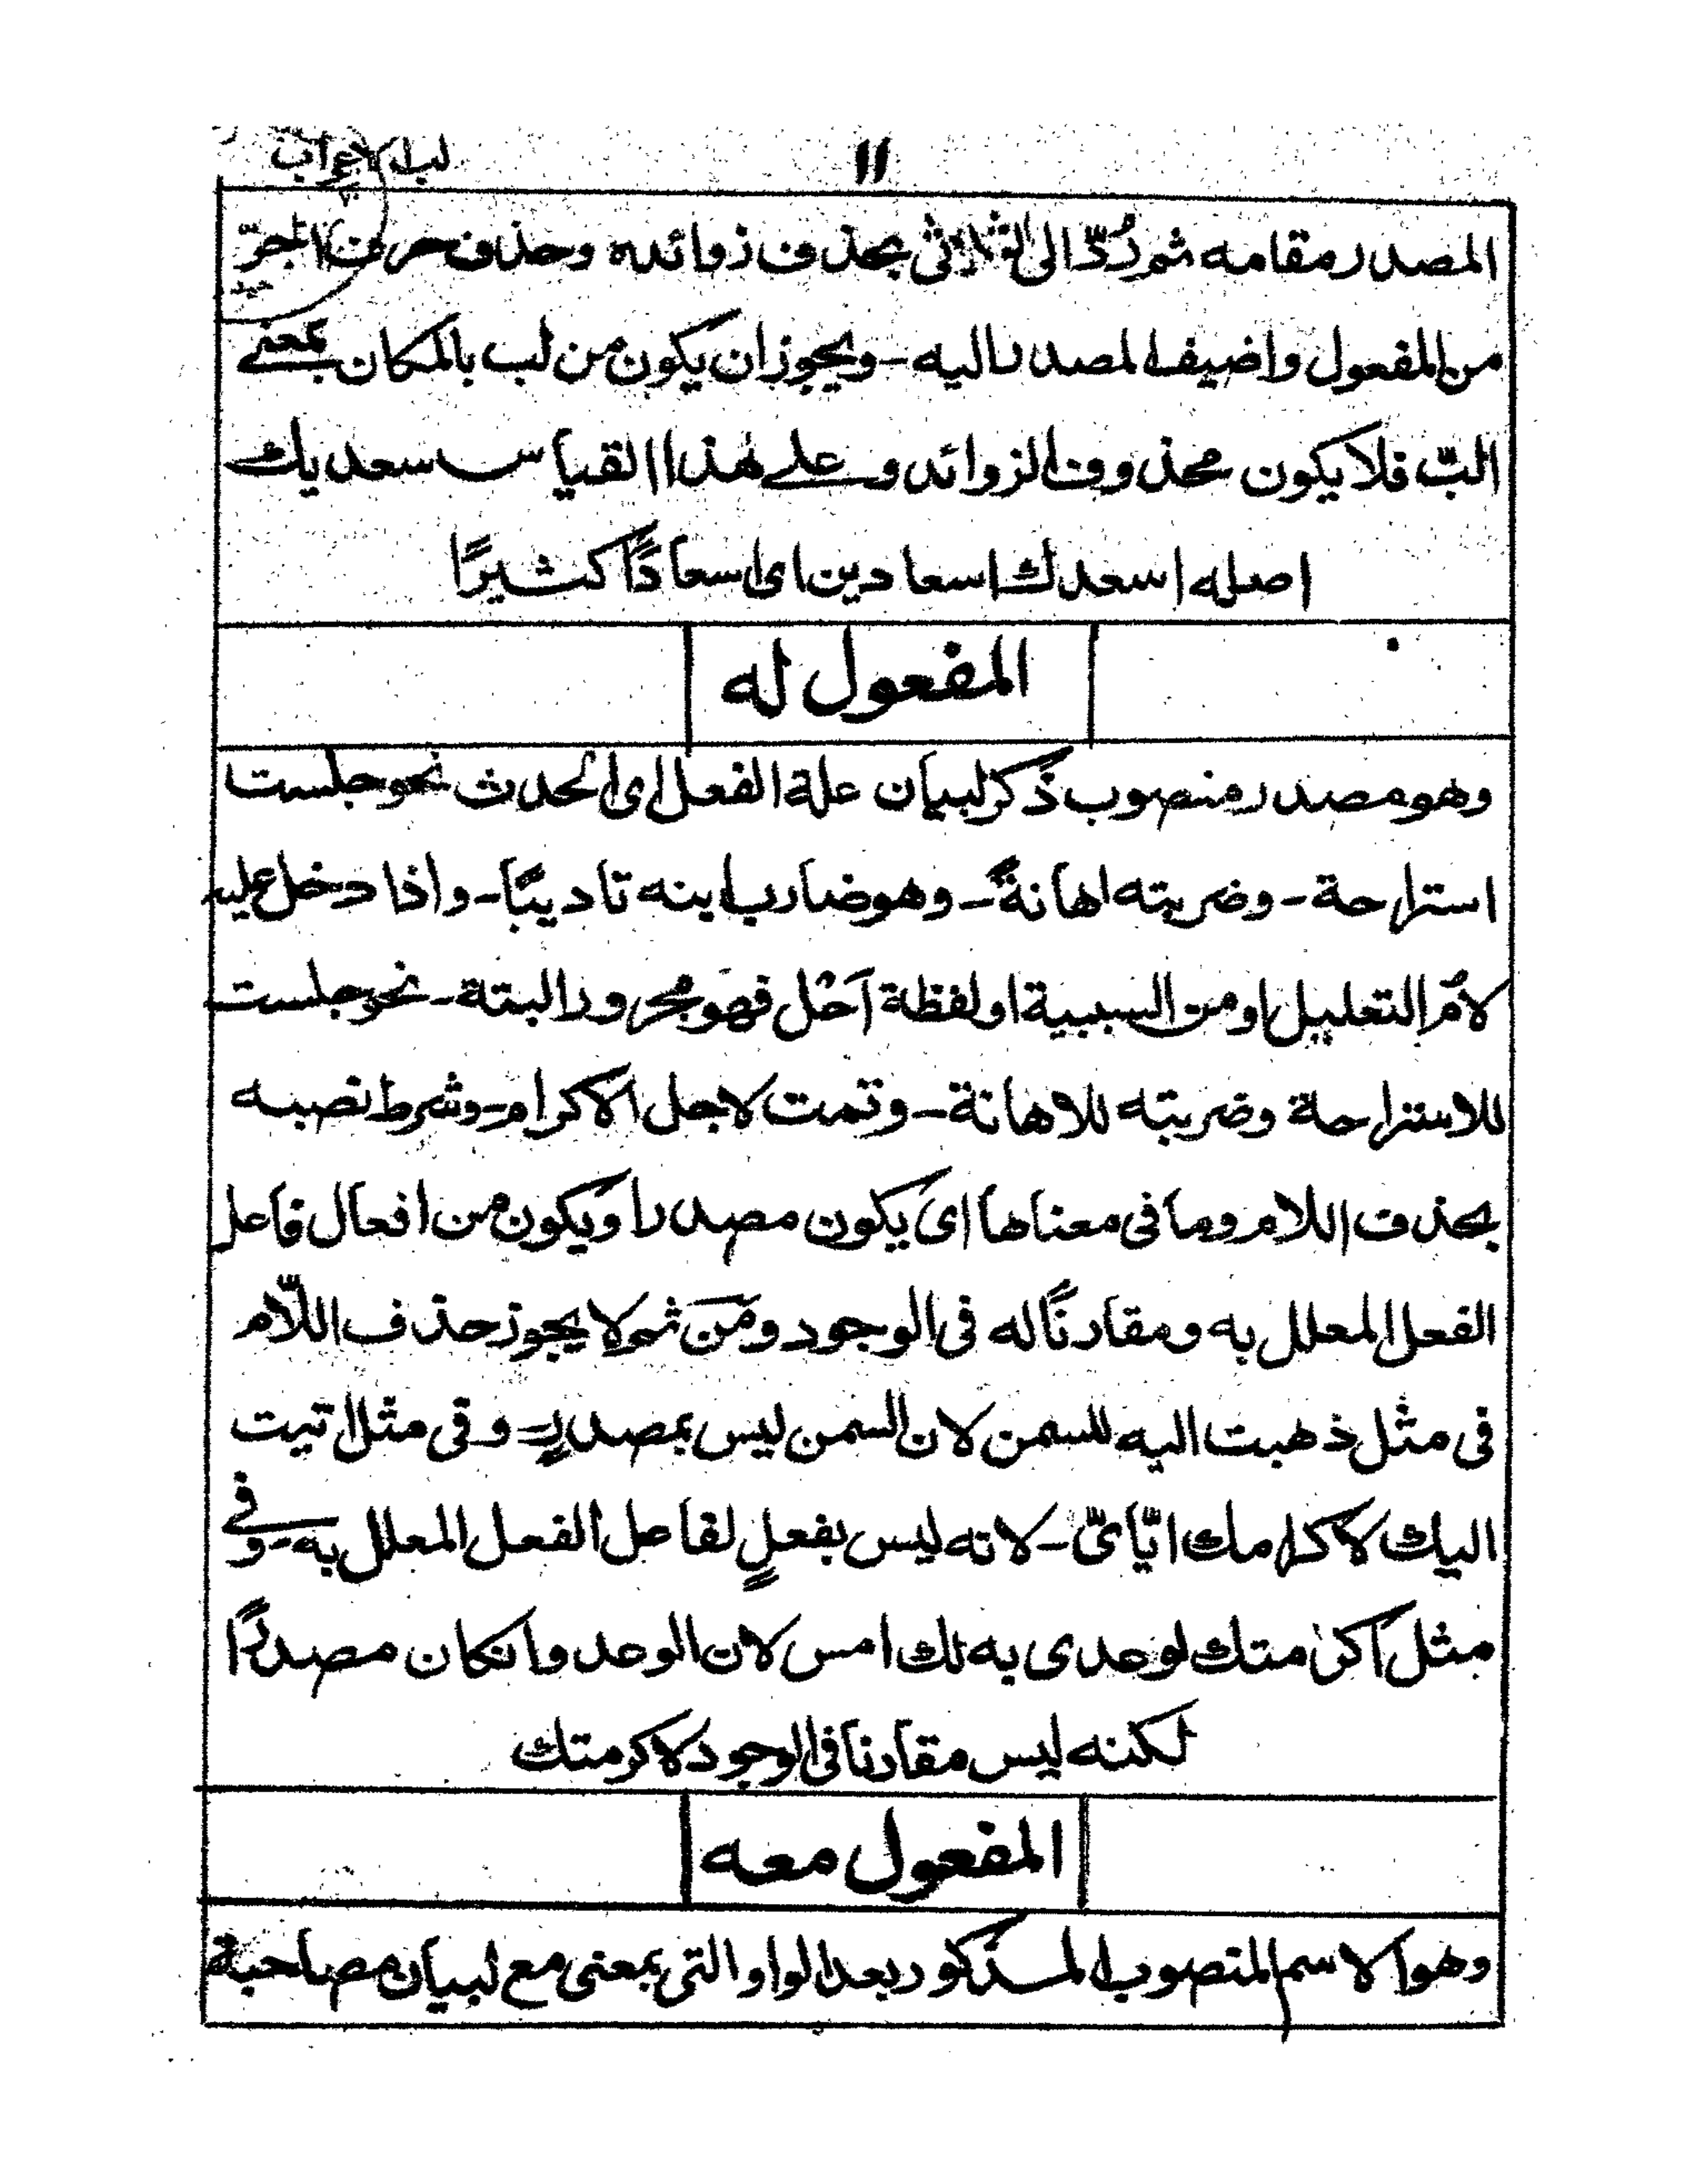 ١١ لب الاعراب
المصدر مقامه ثم رُدّ الى الثلاثى بحذف زوائده وحذف حرف الجرّ
من المفعول واضيف المصدر اليه - ويجوز ان يكون من لب بالمكان بمعنى
البّ فلا يكون محذوف الزوائد وعلى هذا القياس سعديك
اصله اسعدك اسعادين اى اسعادًا كثيرًا
المفعول له
وهو مصدر منصوب ذكر لبيان علة الفعل اى الحدث نحو جلست
استراحة - وضربته اهانةً - وهو ضارب ابنه تاديبًا - واذا دخل عليه
لام التعليل او من السببية او لفظة اجل فهو مجرور البتة - نحو جلست
للاستراحة وضربته للاهانة - وقمت لاجل الاكرام - وشرط نصبه
بحذف اللام وما فى معناها اى يكون مصدرا ويكون من افعال فاعل
الفعل المعلل به ومقارنًا له فى الوجود ومن ثم لا يجوز حذف اللّام
فى مثل ذهبت اليه للسمن لان السمن ليس بمصدرٍ - وفى مثل اتيت
اليك لاكرامك ايّاىّ - لانه ليس بفعلٍ لفاعل الفعل المعلل به - وفى
مثل اكرمتك لوعدى به لك امس لان الوعد وانكان مصدرًا
لكنه ليس مقارنا فى الوجود لاكرمتك
المفعول معه
وهو الاسم المنصوب المذكور بعد الواو التى بمعنى مع لبيان مصاحبة